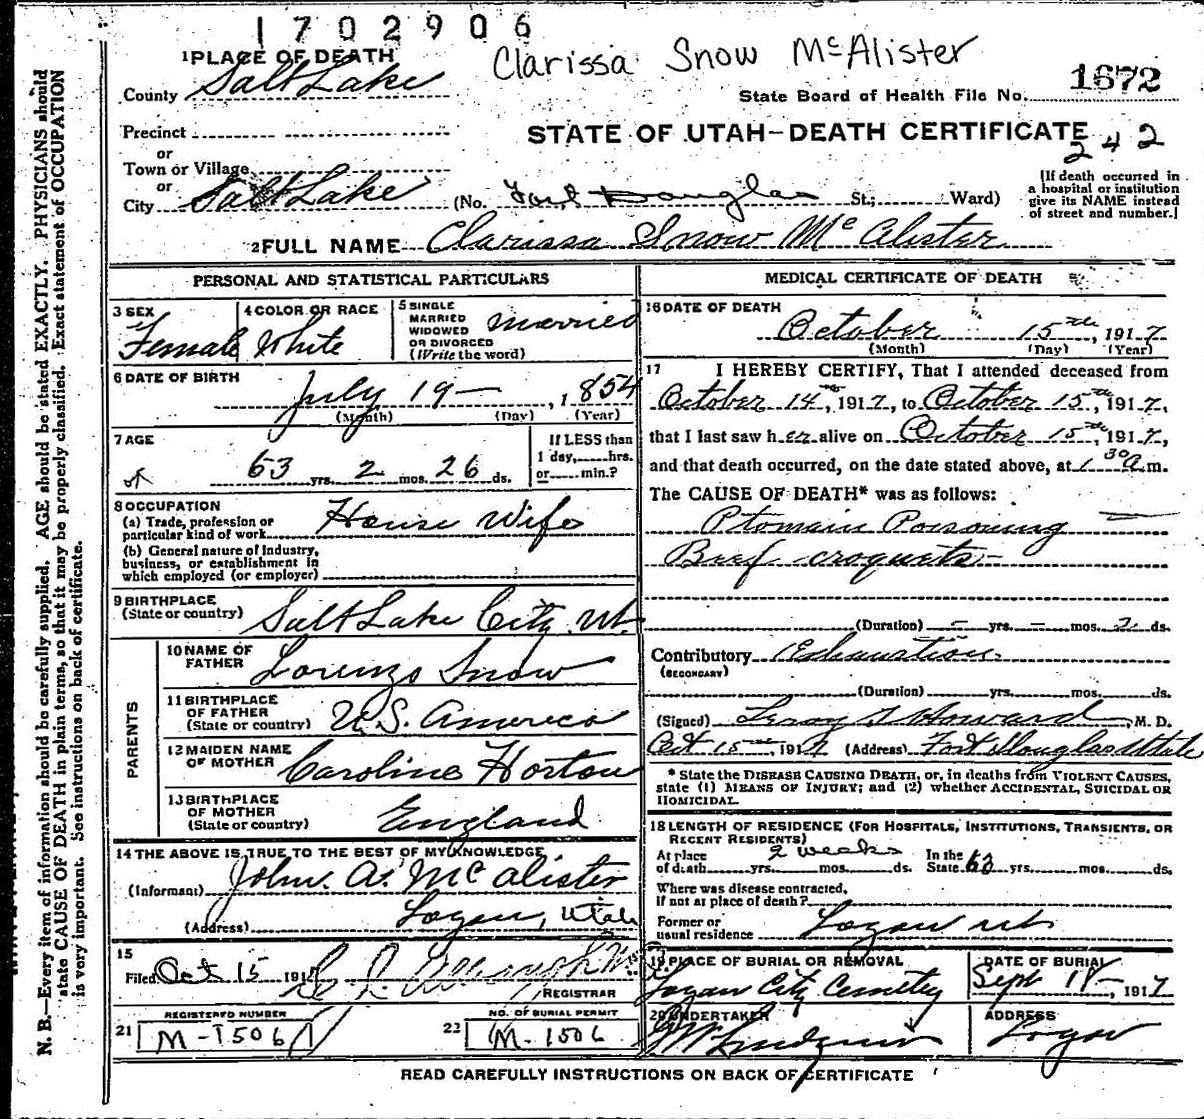 1702906
Clarissa Snow McAlister
1 PLACE OF DEATH
County Salt Lake
State Board of Health File No. 1672
Precinct
STATE OF UTAH—DEATH CERTIFICATE
242
or
Town or Village
or
City Salt Lake (No. Fort Douglas St.; Ward)
[If death occurred in
a hospital or institution
give its NAME instead
of street and number.]
2 FULL NAME Clarissa Snow McAlister
PERSONAL AND STATISTICAL PARTICULARS
3 SEX Female
4 COLOR OR RACE White
5 SINGLE
MARRIED
WIDOWED
OR DIVORCED
(Write the word) married
6 DATE OF BIRTH
July 19—, 1854
(Month) (Day) (Year)
7 AGE
63 yrs. 2 mos. 26 ds.
If LESS than
1 day, hrs.
or min.?
8 OCCUPATION
(a) Trade, profession or
particular kind of work House Wife
(b) General nature of Industry,
business, or establishment in
which employed (or employer)
9 BIRTHPLACE
(State or country) Salt Lake City Ut.
PARENTS
10 NAME OF
FATHER Lorenzo Snow
11 BIRTHPLACE
OF FATHER
(State or country) U.S. America
12 MAIDEN NAME
OF MOTHER Caroline Horton
13 BIRTHPLACE
OF MOTHER
(State or country) England
14 THE ABOVE IS TRUE TO THE BEST OF MY KNOWLEDGE
(Informant) John A. McAlister
(Address) Logan, Utah
15
Filed Oct 15 191
REGISTRAR
REGISTERED NUMBER
21 M-1506
NO. OF BURIAL PERMIT
22 M-1506
MEDICAL CERTIFICATE OF DEATH
16 DATE OF DEATH
October 15th, 1917
(Month) (Day) (Year)
17 I HEREBY CERTIFY, That I attended deceased from
October 14th, 1917, to October 15th, 1917,
that I last saw her alive on October 15th, 1917,
and that death occurred, on the date stated above, at 1 30 a.m.
The CAUSE OF DEATH* was as follows:
Ptomain Poisoning
Beef croquets—
(Duration) – yrs. – mos. 2 ds.
Contributory Exhaustion
(SECONDARY)
(Duration) yrs. mos. ds.
(Signed) Leroy Howard, M. D.
Oct 15th 1917 (Address) Fort Douglas Utah
* State the DISEASE CAUSING DEATH, or, in deaths from VIOLENT CAUSES,
state (1) MEANS OF INJURY; and (2) whether ACCIDENTAL, SUICIDAL OR
HOMICIDAL.
18 LENGTH OF RESIDENCE (FOR HOSPITALS, INSTITUTIONS, TRANSIENTS, OR
RECENT RESIDENTS)
At place
of death yrs. 2 weeks mos. ds. In the
State 63 yrs. mos. ds.
Where was disease contracted,
if not at place of death?
Former or
usual residence Logan Ut
19 PLACE OF BURIAL OR REMOVAL
Logan City Cemetery
DATE OF BURIAL
Sept 18—, 1917
20 UNDERTAKER
ADDRESS
Logan
READ CAREFULLY INSTRUCTIONS ON BACK OF CERTIFICATE
N. B.—Every item of information should be carefully supplied. AGE should be stated EXACTLY. PHYSICIANS should
state CAUSE OF DEATH in plain terms, so that it may be properly classified. Exact statement of OCCUPATION
is very important. See instructions on back of certificate.